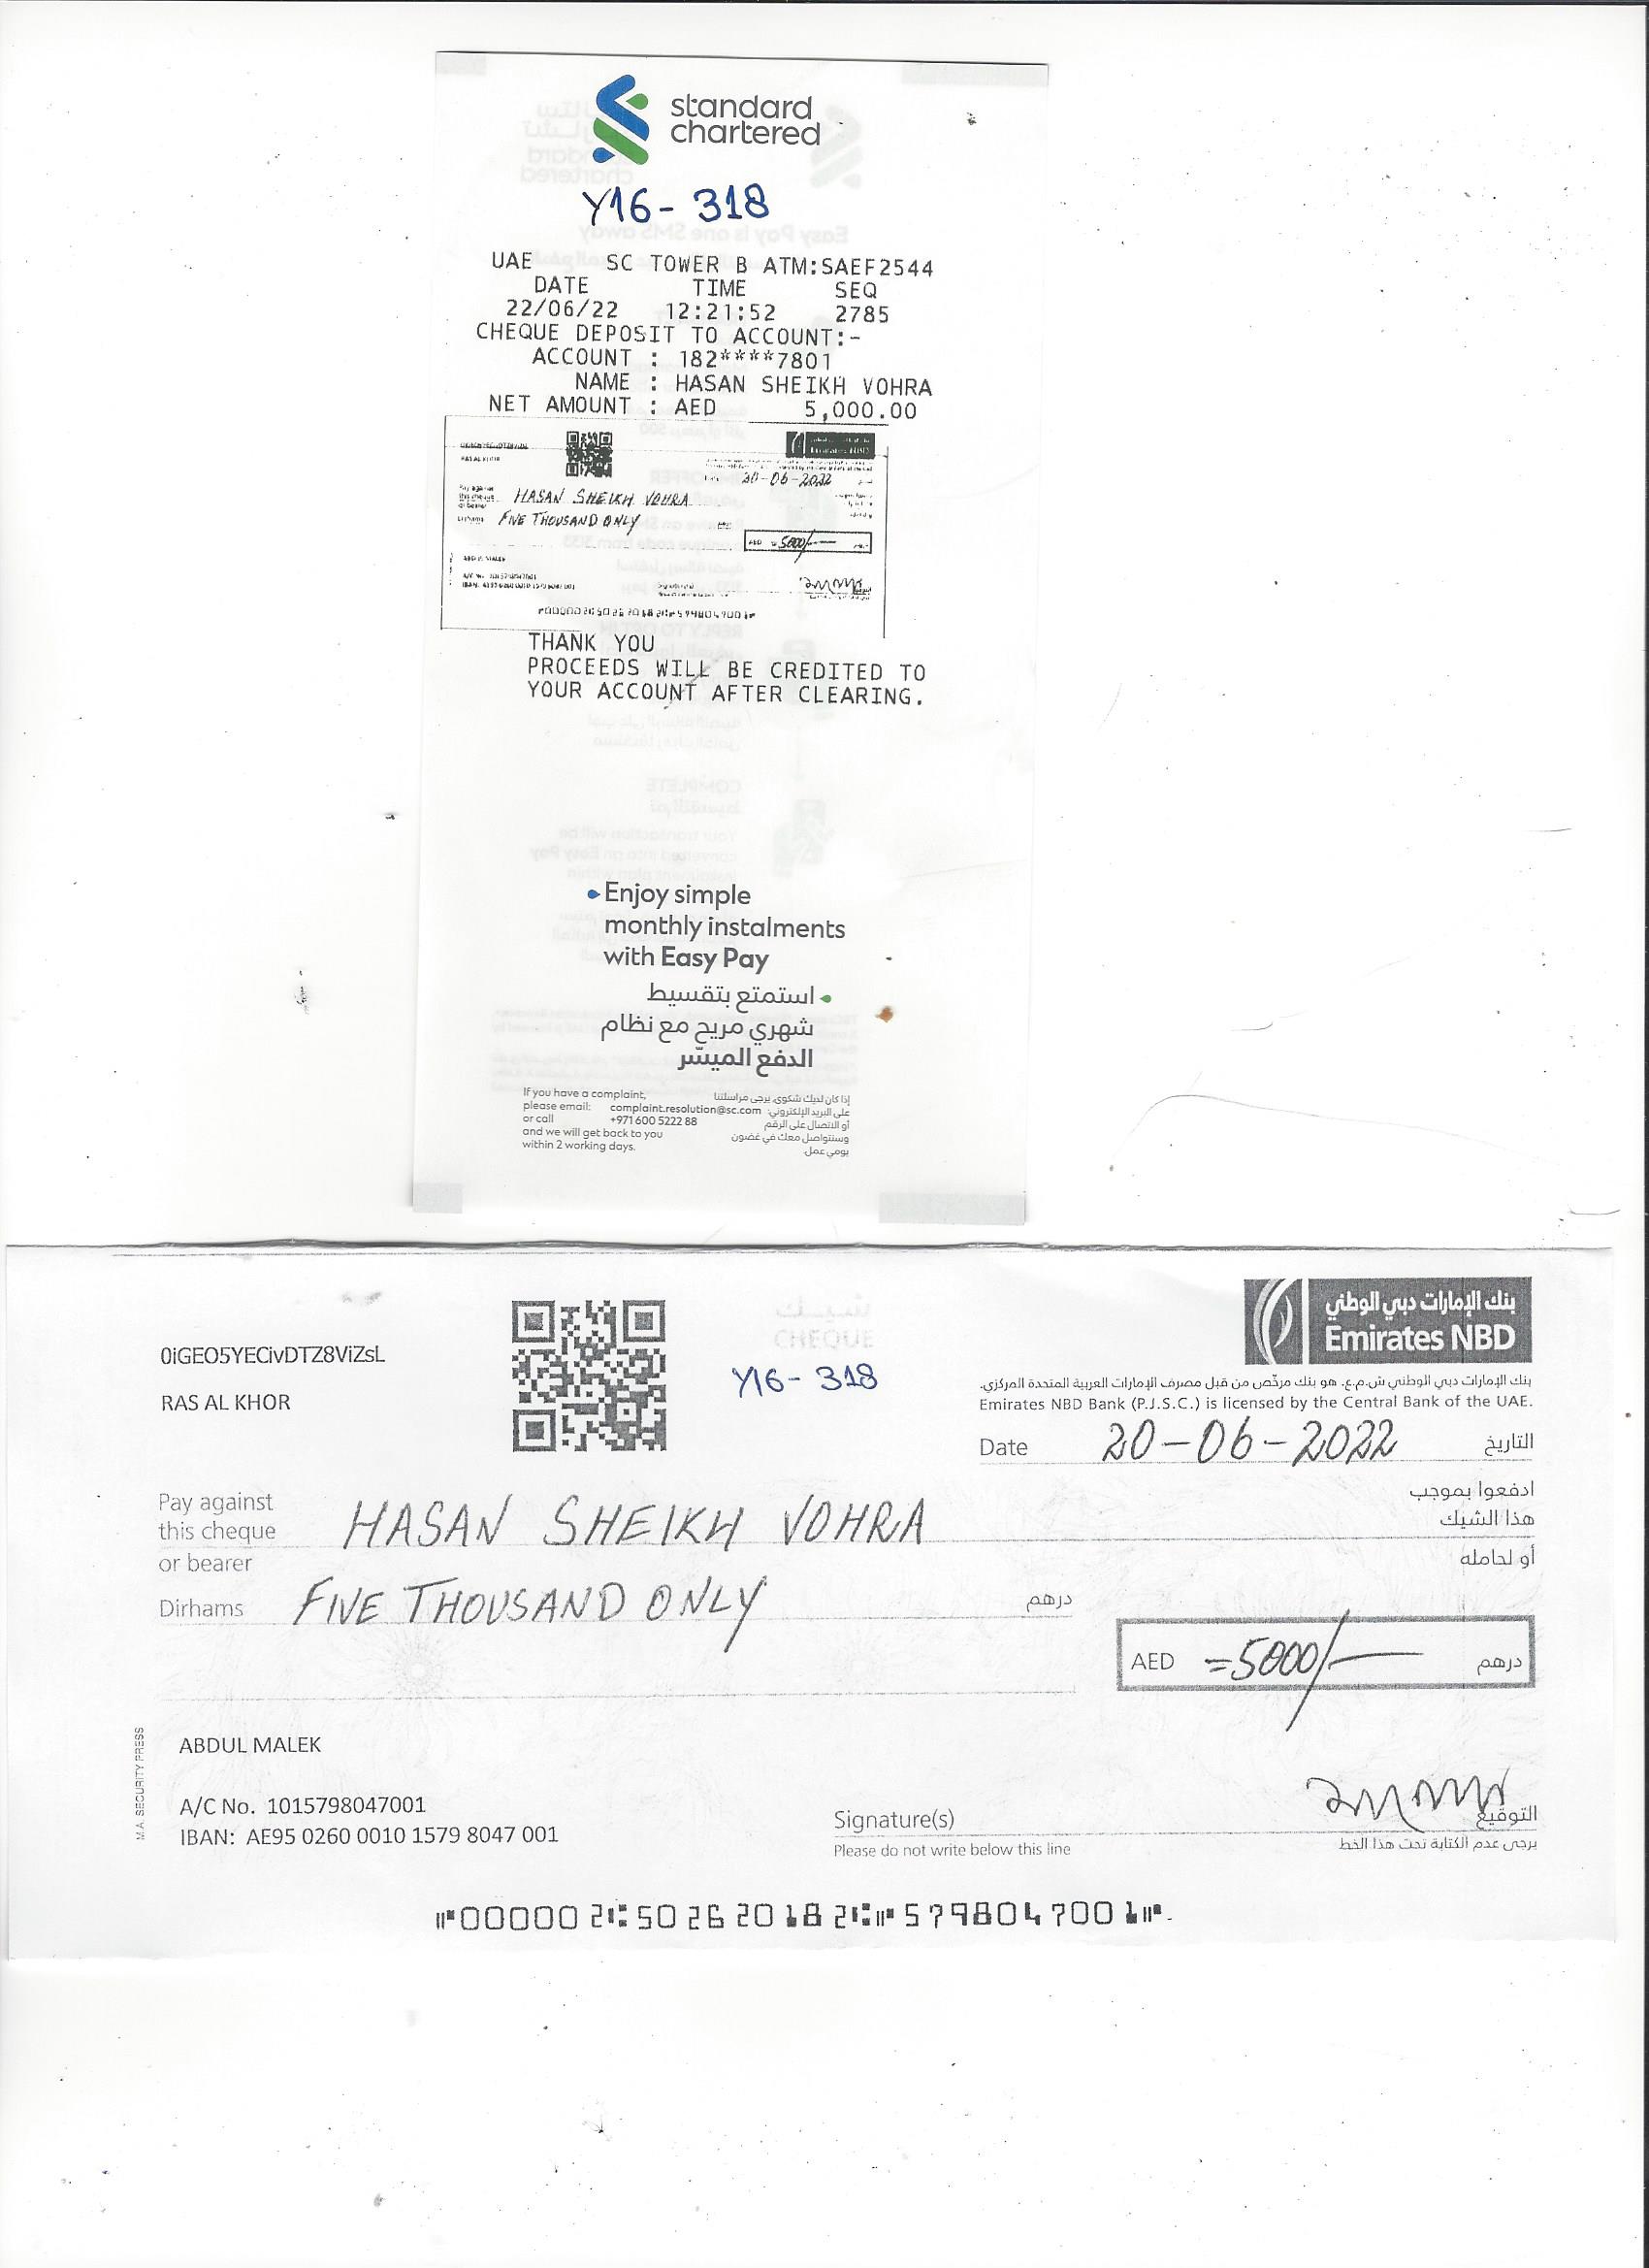 standard
chartered
Y16- 318
UAE SC TOWER B ATM:SAEF2544
DATE TIME SEQ
22/06/22 12:21:52 2785
CHEQUE DEPOSIT TO ACCOUNT:-
ACCOUNT : 182****7801
NAME : HASAN SHEIKH VOHRA
NET AMOUNT : AED 5,000.00
RAS AL KHOR
Emirates NBD
20-06-2022
Pay against
this cheque HASAN SHEIKH VOHRA
or bearer
Dirhams FIVE THOUSAND ONLY
AED =5000/-
ABDUL MALEK
THANK YOU
PROCEEDS WILL BE CREDITED TO
YOUR ACCOUNT AFTER CLEARING.
Enjoy simple
monthly instalments
with Easy Pay
استمتع بتقسيط
شهري مريح مع نظام
الدفع الميسّر
If you have a complaint,
please email: complaint.resolution@sc.com
or call +971 600 5222 88
and we will get back to you
within 2 working days.
إذا كان لديك شكوى، يرجى مراسلتنا
على البريد الإلكتروني:
أو الاتصال على الرقم
وسنتواصل معك في غضون
يومي عمل.
بنك الإمارات دبي الوطني
Emirates NBD
CHEQUE
0iGEO5YECivDTZ8ViZsL
Y16- 318
بنك الإمارات دبي الوطني ش.م.ع. هو بنك مرخّص من قبل مصرف الإمارات العربية المتحدة المركزي.
RAS AL KHOR
Emirates NBD Bank (P.J.S.C.) is licensed by the Central Bank of the UAE.
Date 20-06-2022 التاريخ
Pay against ادفعوا بموجب
this cheque HASAN SHEIKH VOHRA هذا الشيك
or bearer أو لحامله
Dirhams FIVE THOUSAND ONLY درهم
AED =5000/- درهم
M.A. SECURITY PRESS
ABDUL MALEK
A/C No. 1015798047001
IBAN: AE95 0260 0010 1579 8047 001
Signature(s) التوقيع
Please do not write below this line يرجى عدم الكتابة تحت هذا الخط
⑈000002⑆502620182⑆⑈5798047001⑈